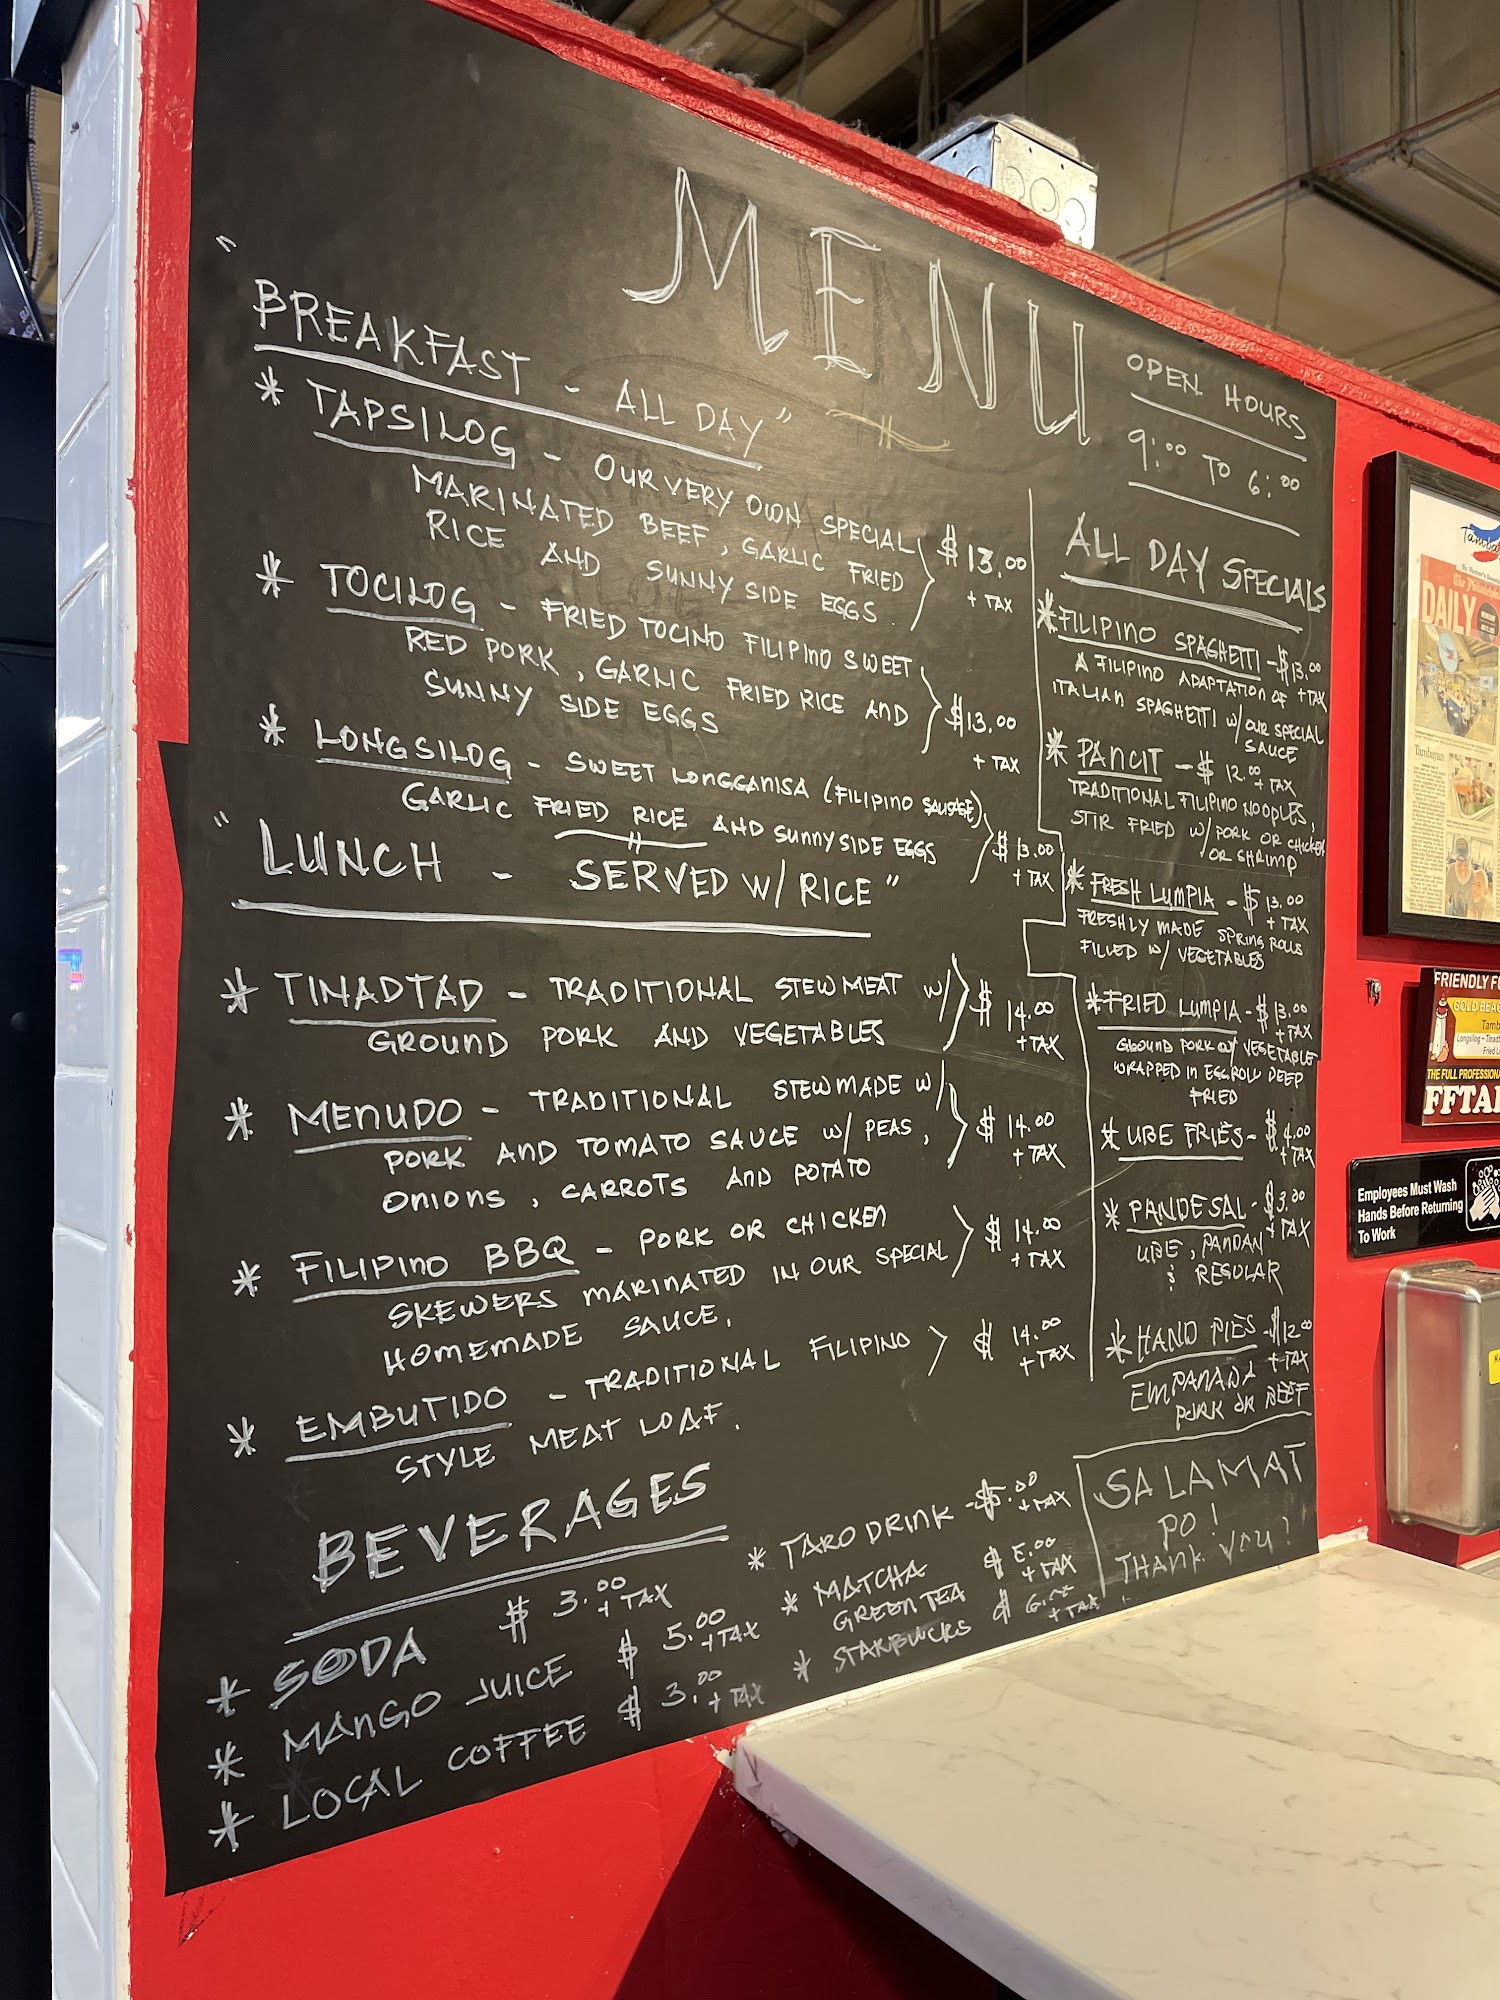 MENU
"BREAKFAST - ALL DAY"
* TAPSILOG - OUR VERY OWN SPECIAL
MARINATED BEEF, GARLIC FRIED
RICE AND SUNNY SIDE EGGS.
$13.00
+ TAX
* TOCILOG - FRIED TOCINO FILIPINO SWEET
RED PORK, GARLIC FRIED RICE AND
SUNNY SIDE EGGS
$13.00
+ TAX
* LONGSILOG - SWEET LONGGANISA (FILIPINO SAUSAGE)
GARLIC FRIED RICE AND SUNNY SIDE EGGS
$13.00
+ TAX
"LUNCH - SERVED W/ RICE"
* TINADTAD - TRADITIONAL STEW MEAT W/
GROUND PORK AND VEGETABLES
$14.00
+ TAX
* MENUDO - TRADITIONAL STEW MADE W/
PORK AND TOMATO SAUCE W/ PEAS,
ONIONS, CARROTS AND POTATO
$14.00
+ TAX
* FILIPINO BBQ - PORK OR CHICKEN
SKEWERS MARINATED IN OUR SPECIAL
HOMEMADE SAUCE.
$14.00
+ TAX
* EMBUTIDO - TRADITIONAL FILIPINO
STYLE MEAT LOAF.
$14.00
+ TAX
BEVERAGES
* SODA $3.00
+ TAX
* MANGO JUICE $5.00
+ TAX
* LOCAL COFFEE $3.00
+ TAX
* TARO DRINK - $5.00
+ TAX
* MATCHA
GREEN TEA
+ TAX
* STARBUCKS
+ TAX
OPEN HOURS
9:00 TO 6:00
ALL DAY SPECIALS
* FILIPINO SPAGHETTI - $13.00
+ TAX
A FILIPINO ADAPTATION OF
ITALIAN SPAGHETTI W/ OUR SPECIAL
SAUCE
* PANCIT - $12.00 + TAX
TRADITIONAL FILIPINO NOODLES,
STIR FRIED W/ PORK OR CHICKEN
OR SHRIMP
* FRESH LUMPIA - $13.00
+ TAX
FRESHLY MADE SPRING ROLLS
FILLED W/ VEGETABLES
* FRIED LUMPIA - $13.00
+ TAX
GROUND PORK W/ VEGETABLE
WRAPPED IN EGGROLL DEEP
FRIED
* UBE FRIES - $4.00
+ TAX
* PANDESAL - $3.00
+ TAX
UBE, PANDAN
& REGULAR
* HAND PIES - $12.00
+ TAX
EMPANADA
PORK OR BEEF
SALAMAT
PO!
THANK YOU!
The Philadelphia
DAILY
Tambayan
FRIENDLY
GOLD
THE FULL PROFESSIONA
FFTA
Employees Must Wash
Hands Before Returning
To Work